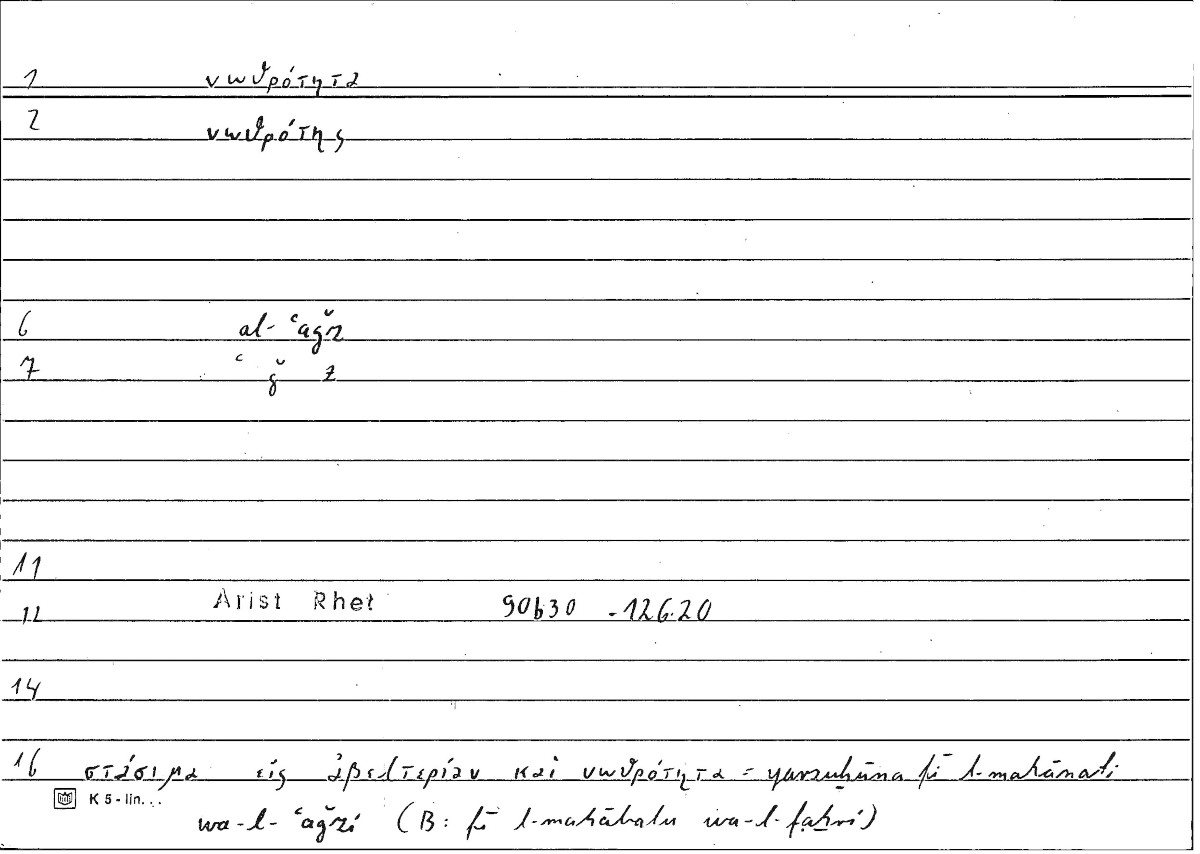 1 νωθρότητα
2 νωθρότης
6 al-ʿaǧz
7 ʿ ǧ z
11
12 Arist Rhet 90b30 - 126.20
14
16 στάσιμα εἰς ἀβελτερίαν καὶ νωθρότητα = yarzuḥūna fī l-mahānati
K 5 - lin...
wa-l-ʿaǧzi (B: fī l-mahābalu wa-l-faḫri)